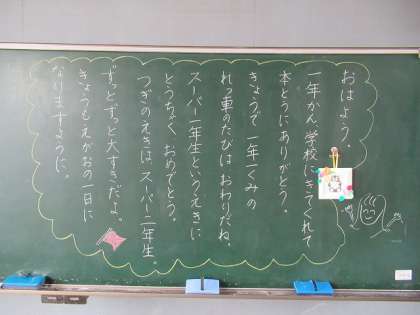 おはよう。
一年かん、学校にきてくれて
本とうにありがとう。
きょうで一年一くみの
れっ車のたびはおわりだね。
スーパー一年生というえきに
とうちゃく おめでとう。
つぎのえきは スーパー二年生。
ずっとずっと大すきだよ。
きょうもえがおの一日に
なりますように。